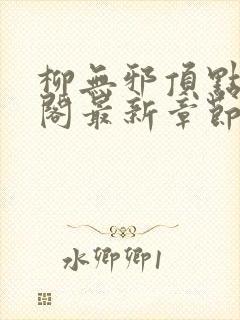 柳無邪頂點
閣最新章節
水卿卿1